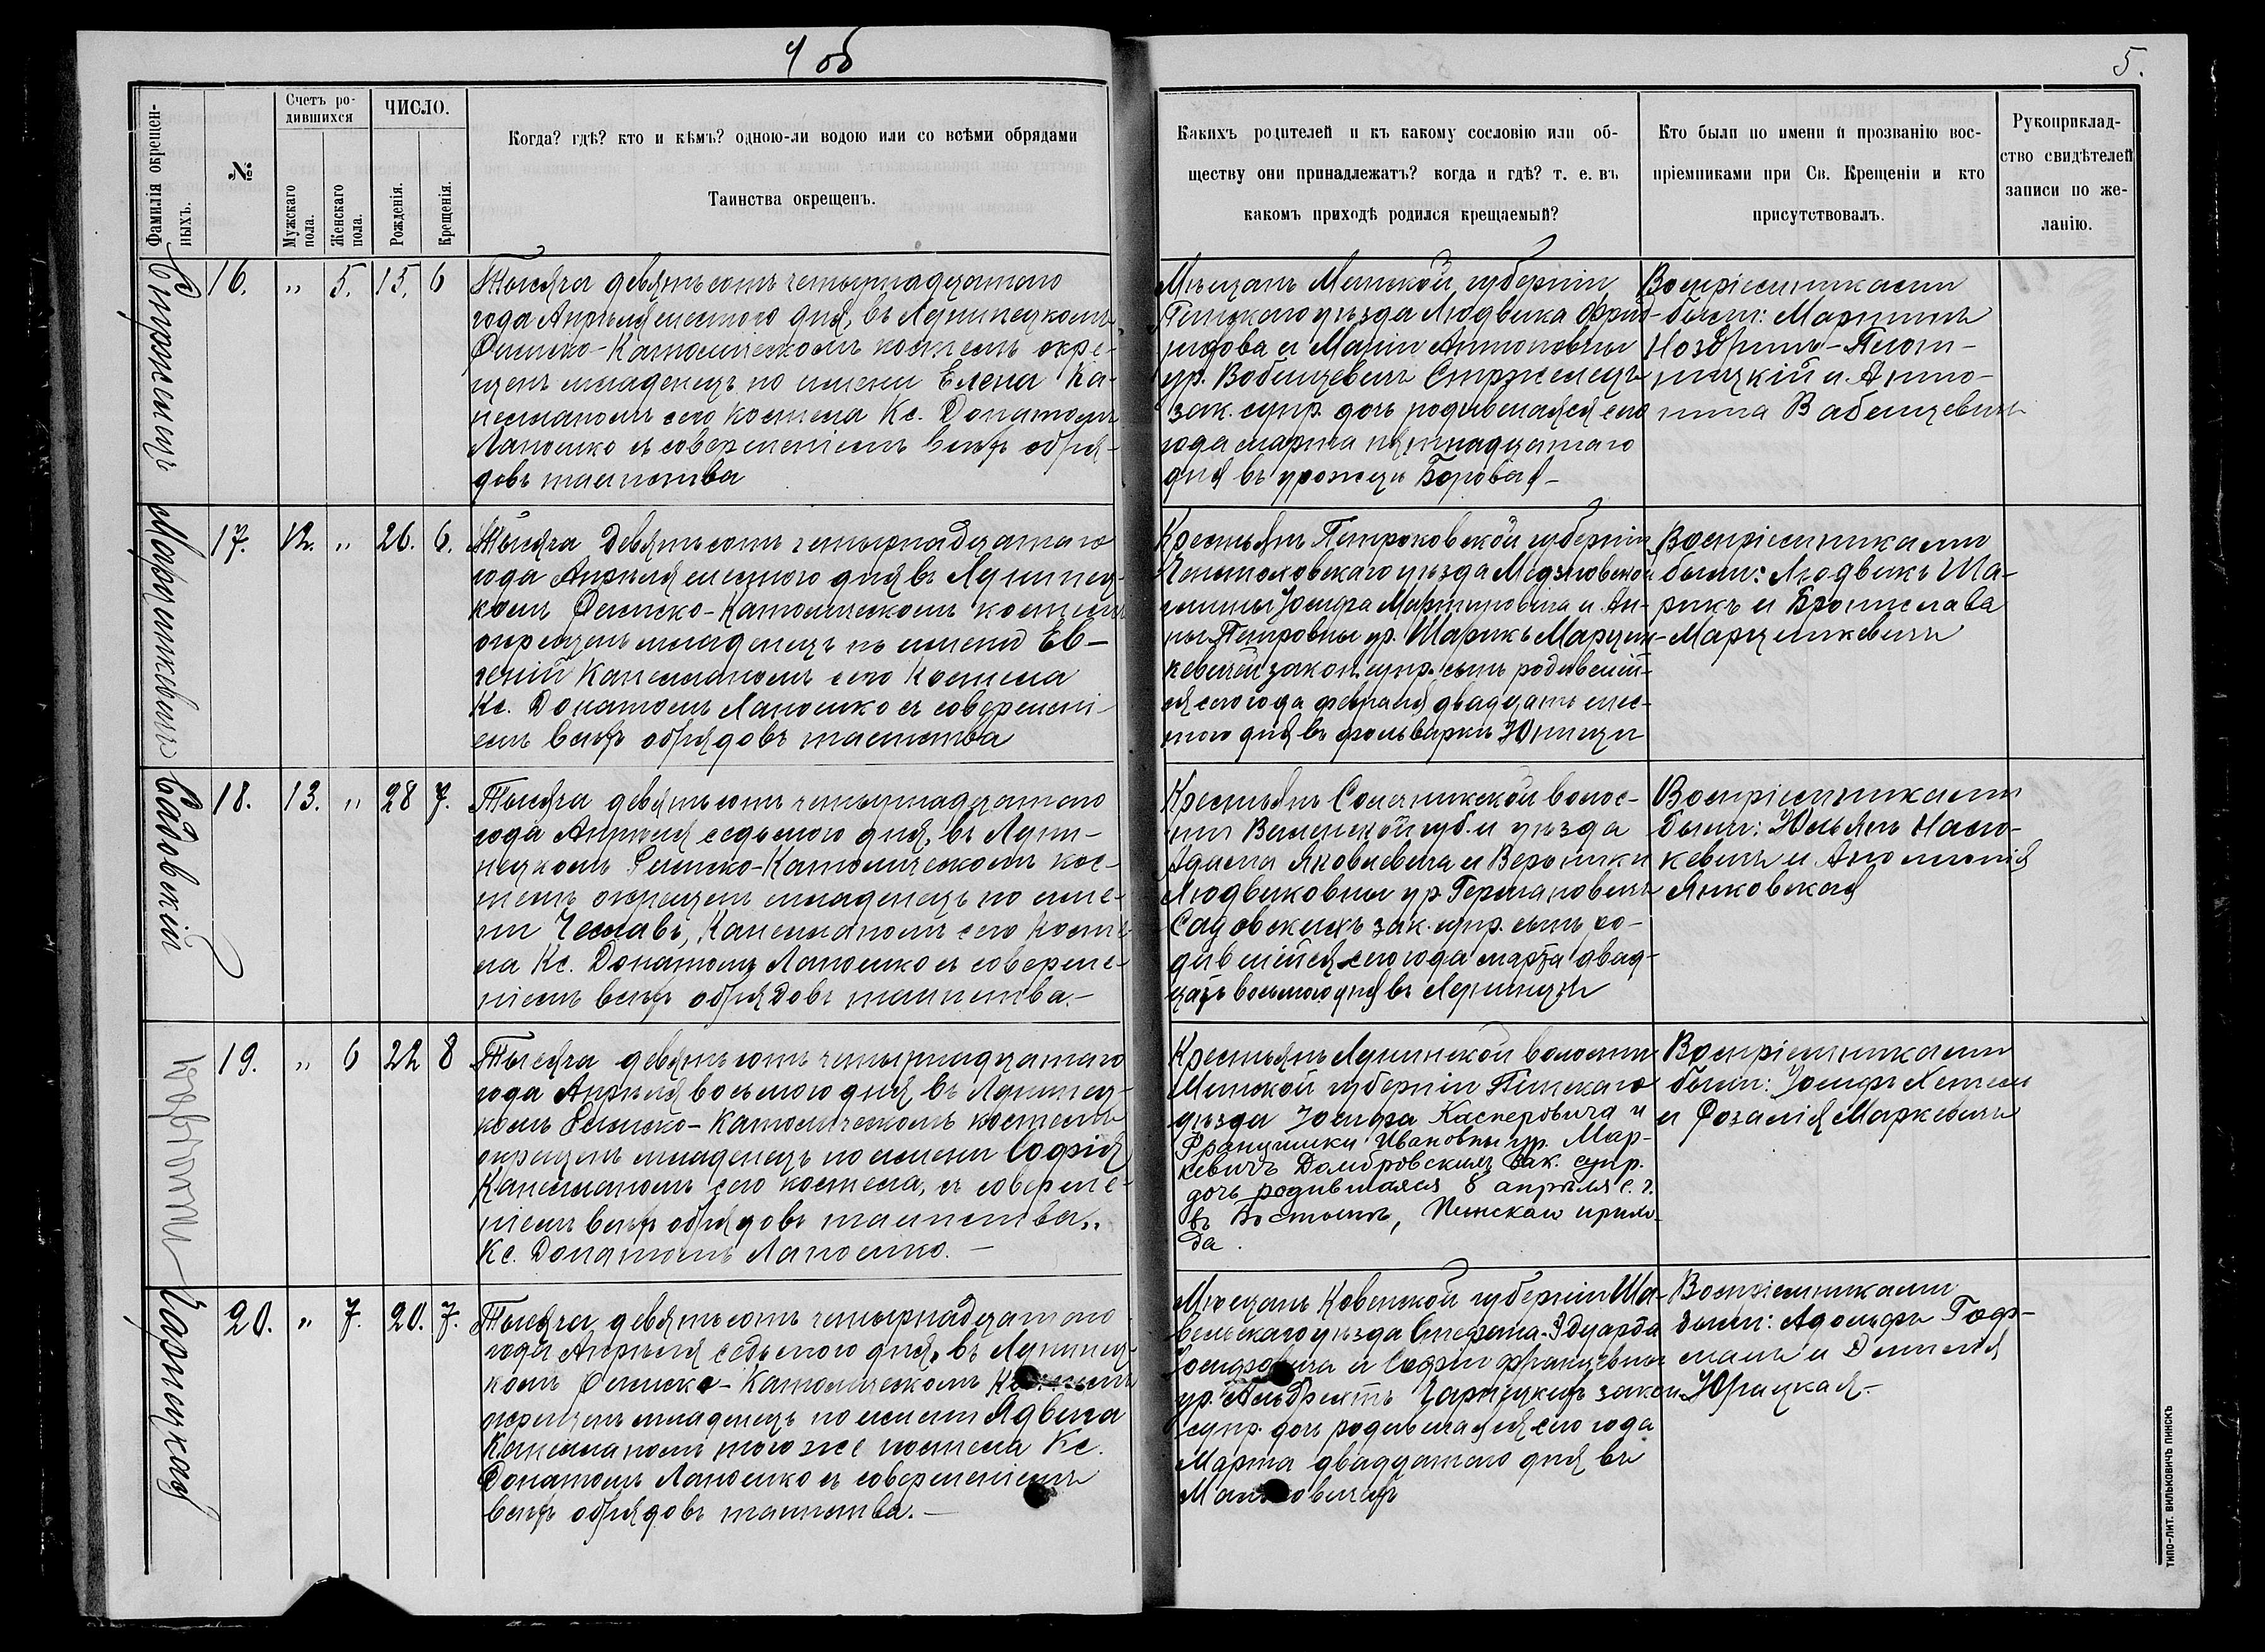 4 об
5.
Фамилія окрещен-
ныхъ.
№
Счетъ ро-
дившихся
Мужскаго
пола.
Женскаго
пола.
ЧИСЛО.
Рожденія.
Крещенія.
Когда? гдѣ? кто и кѣмъ? одною-ли водою или со всѣми обрядами
Таинства окрещенъ.
Какихъ родителей и къ какому сословію или об-
ществу они принадлежатъ? когда и гдѣ? т. е. въ
какомъ приходѣ родился крещаемый?
Кто были по имени и прозванію вос-
пріемниками при Св. Крещеніи и кто
присутствовалъ.
Рукоприклад-
ство свидѣтелей
записи по же-
ланію.
Стржелецъ
16. " 5. 15. 6
Тысяча девятьсотъ четырнадцатого
года Апрѣля шестого дня, въ Лунинецкомъ
Римско-Католическомъ костелѣ окре-
щенъ младенецъ по имени Елена Ка-
пелланомъ сего костела Кс. Донатомъ
Лапошко съ совершеніемъ всѣхъ обря-
довъ таинства
Мѣщанъ Минской губерніи
Пинскаго уѣзда Людвика
и Маріи Антоновны
ур. Вабищевичъ Стржелецъ
зак. супр. дочь родившаяся сего
года марта пятнадцатаго
дня въ урочищи Боровая –
Воспріемниками
были: Мартинъ
Ноздринъ-Плот-
ницкій и Анто-
нина Вабищевичъ
Марцинкевичъ
17. 12. " 26. 6.
Тысяча девятьсотъ четырнадцатаго
года Апрѣля шестого дня въ Лунинец-
комъ Римско-Католическомъ костелѣ
окрещенъ младенецъ по имени Ев-
геній Капелланомъ сего костела
Кс. Донатомъ Лапошко съ совершені-
емъ всѣхъ обрядовъ таинства
Крестьянъ Петроковской губерніи
Ченстоховскаго уѣзда
гмины Іосифа Мартиновича и Ан-
ны Петровны ур. Шарикъ Марцин-
кевичей закон. супр. сынъ родившій-
ся сего года февраля двадцать шес-
того дня въ фольварки Юнищи
Воспріемниками
были: Людвикъ Ша-
рикъ и Бронислава
Марцинкевичъ
Садовскій
18. 13. " 28 7.
Тысяча девятьсотъ четырнадцатого
года Апрѣля седьмого дня, въ Луни-
нецкомъ Римско-Католическомъ кос-
телѣ окрещенъ младенецъ по име-
ни Чеславъ, Капелланомъ сего косте-
ла Кс. Донатомъ Лапошко съ соверше-
ніемъ всѣхъ обрядовъ таинства.–
Крестьянъ Солечникской волос-
ти Виленской губ. и уѣзда
Адама Яковлевича и Вероники
Людвиковны ур. Германовичъ
Садовскихъ зак. супр. сынъ ро-
дившійся сего года марта двад-
цать восьмого дня въ Лунинцѣ
Воспріемниками
были: Юльянъ
кевичъ и Аполлонія
Янковская
19. " 6 22 8
Тысяча девятьсотъ четырнадцатаго
года Апрѣля восьмого дня, въ Лунинец-
комъ Римско-Католическомъ костелѣ
окрещенъ младенецъ по имени Софія
Капелланомъ сего костела, съ соверше-
ніемъ всѣхъ обрядовъ таинства.
Кс. Донатомъ Лапошко.–
Крестьянъ Лунинской волости
Минской губерніи Пинскаго
уѣзда Іосифа Касперовича и
Францишки Ивановны ур. Мар-
кевичъ Домбровскихъ зак. супр.
дочь родившаяся 8 апрѣля с. г.
въ Бостынѣ, Пинскаго прихо-
да.
Воспріемниками
были: Іосифъ
и Розалія Маркевичъ
Чарнецкая
20. " 7. 20. 7.
Тысяча девятьсотъ четырнадцатого
года Апрѣля седьмого дня, въ Лунинец-
комъ Римско-Католическомъ костелѣ
окрещенъ младенецъ по имени Ядвига
Капелланомъ того же костела Кс.
Донатомъ Лапошко съ совершеніемъ
всѣхъ обрядовъ таинства.–
Мѣщанъ Ковенской губерніи Ша-
вельскаго уѣзда Стефана-Эдуарда
Іосифовича и Софіи Францевны
ур. Альбрехтъ Чарнецкихъ закон.
супр. дочь родившаяся сего года
Марта двадцатого дня въ
Воспріемниками
были: Адольфъ Гоф-
манъ и
Юрацкая.–
ТИПО-ЛИТ. ВИЛЬКОВИЧЪ ПИНСКЪ